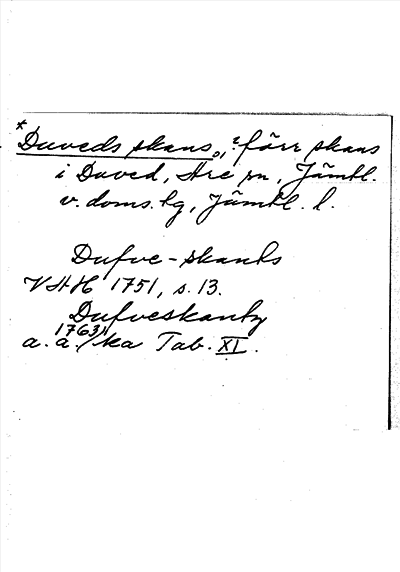 * Duveds skans, ? förr skans
i Duved, Åre sn, Jämtl.
v. doms. tg, Jämtl. l.
Dufve-skants
VAH 1751, s. 13.
Dufveskantz
a. a. 1763, ka Tab. XI.